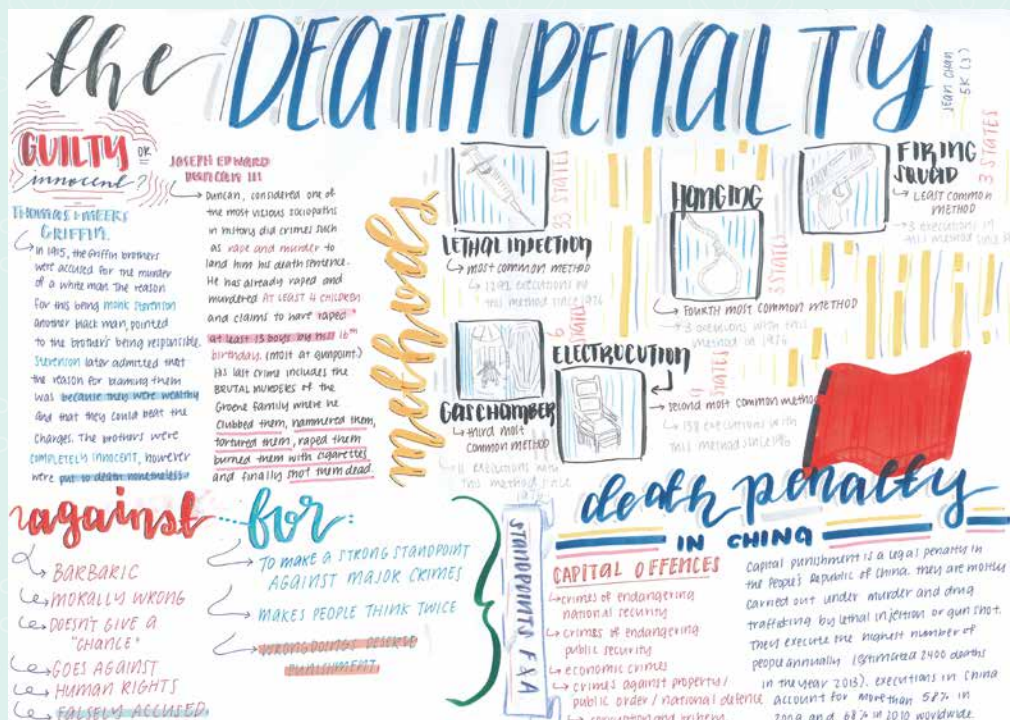 the DEATH PENALTY
JEAN CHAN
5K (3)
GUILTY OR
innocent?
THOMAS & MEEKS
GRIFFIN
In 1915, the Griffin brothers
were accused for the murder
of a white man. The reason
for this being monk stevenson
another black man, pointed
to the brothers being responsible.
Stevenson later admitted that
the reason for blaming them
was because they were wealthy
and that they could beat the
charges. The brothers were
COMPLETELY INNOCENT, however
were put to death nonetheless.
JOSEPH EDWARD
DUNCAN III
Duncan, considered one of
the most vicious sociopaths
in history did crimes such
as rape and murder to
land him his death sentence.
He has already raped and
murdered AT LEAST 4 CHILDREN
and claims to have raped
at least 13 boys by his 16th
birthday. (most at gunpoint.)
His last crime includes the
BRUTAL MURDERS of the
Groene family where he
clubbed them, hammered them,
tortured them, raped them
burned them with cigarettes
and finally shot them dead.
methods
33 STATES
LETHAL INJECTION
most common METHOD
executions by
this method since 1976
HANGING
3 STATES
FOURTH MOST COMMON METHOD
3 executions with this
method in 1976
FIRING
SQUAD
3 STATES
LEAST COMMON
METHOD
3 executions in
this method since
6
STATES
GAS CHAMBER
third most
COMMON METHOD
11 executions
this method since
ELECTROCUTION
9
STATES
second most common method
158 executions with
this method since 1976
against
BARBARIC
MORALLY WRONG
DOESN'T GIVE A
"CHANCE"
GOES AGAINST
HUMAN RIGHTS
FALSELY ACCUSED
for:
TO MAKE A STRONG STANDPOINT
AGAINST MAJOR CRIMES
MAKES PEOPLE THINK TWICE
WRONGDOINGS DESERVE
PUNISHMENT
STANDPOINTS F&A
death penalty
IN CHINA
CAPITAL OFFENCES
crimes of endangering
national security
crimes of endangering
public security
economic crimes
crimes against property/
public order / national defence
corruption and bribery
Capital punishment is a legal penalty in
the People's Republic of China. they are mostly
carried out under murder and drug
trafficking by lethal injection or gun shot.
They execute the highest number of
people annually (estimated 2400 deaths
in the year 2013). executions in China
account for more than 58% in
2009 and 68% in 2010 worldwide